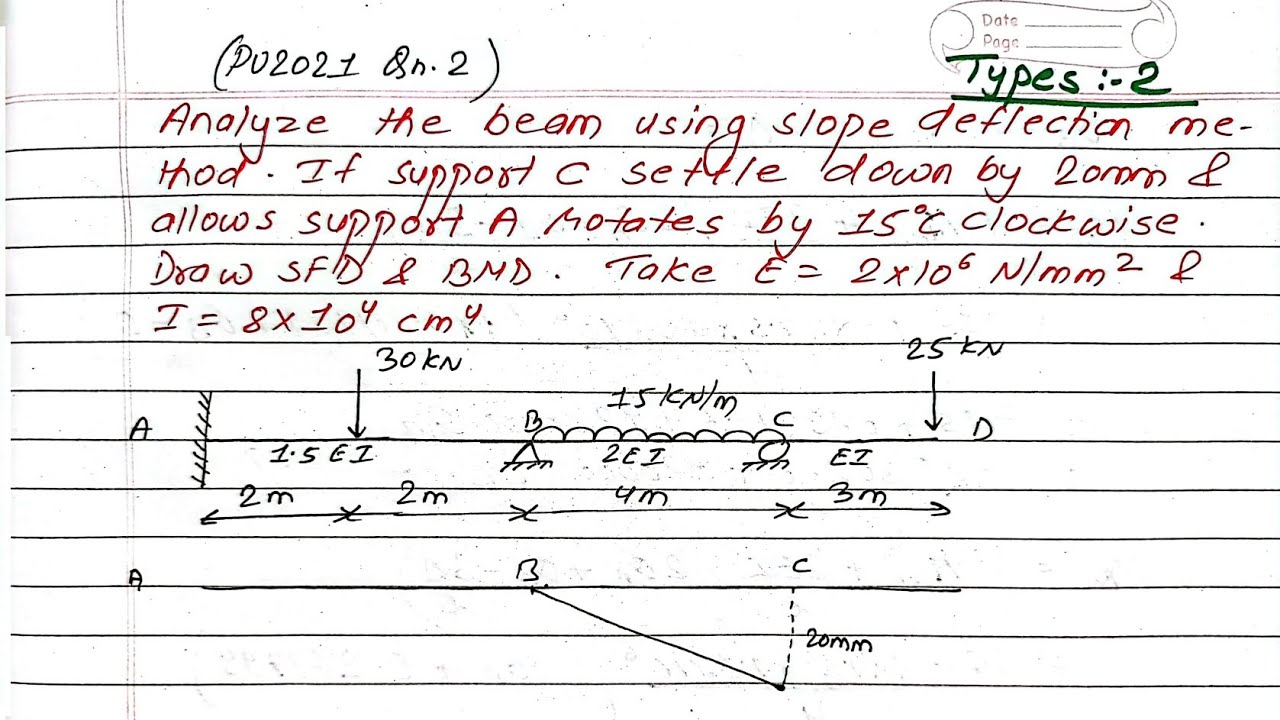 Date
Page
(PU2021 Qn. 2)
Types :- 2
Analyze the beam using slope deflection me-
thod. If support C settle down by 20mm &
allows support A rotates by 15°C clockwise.
Draw SFD & BMD. Take E = 2×10⁶ N/mm² &
I = 8×10⁴ cm⁴.
30 KN
25 KN
15 KN/m
A B C D
1.5 EI 2EI EI
2m 2m 4m 3m
A B. C
20mm